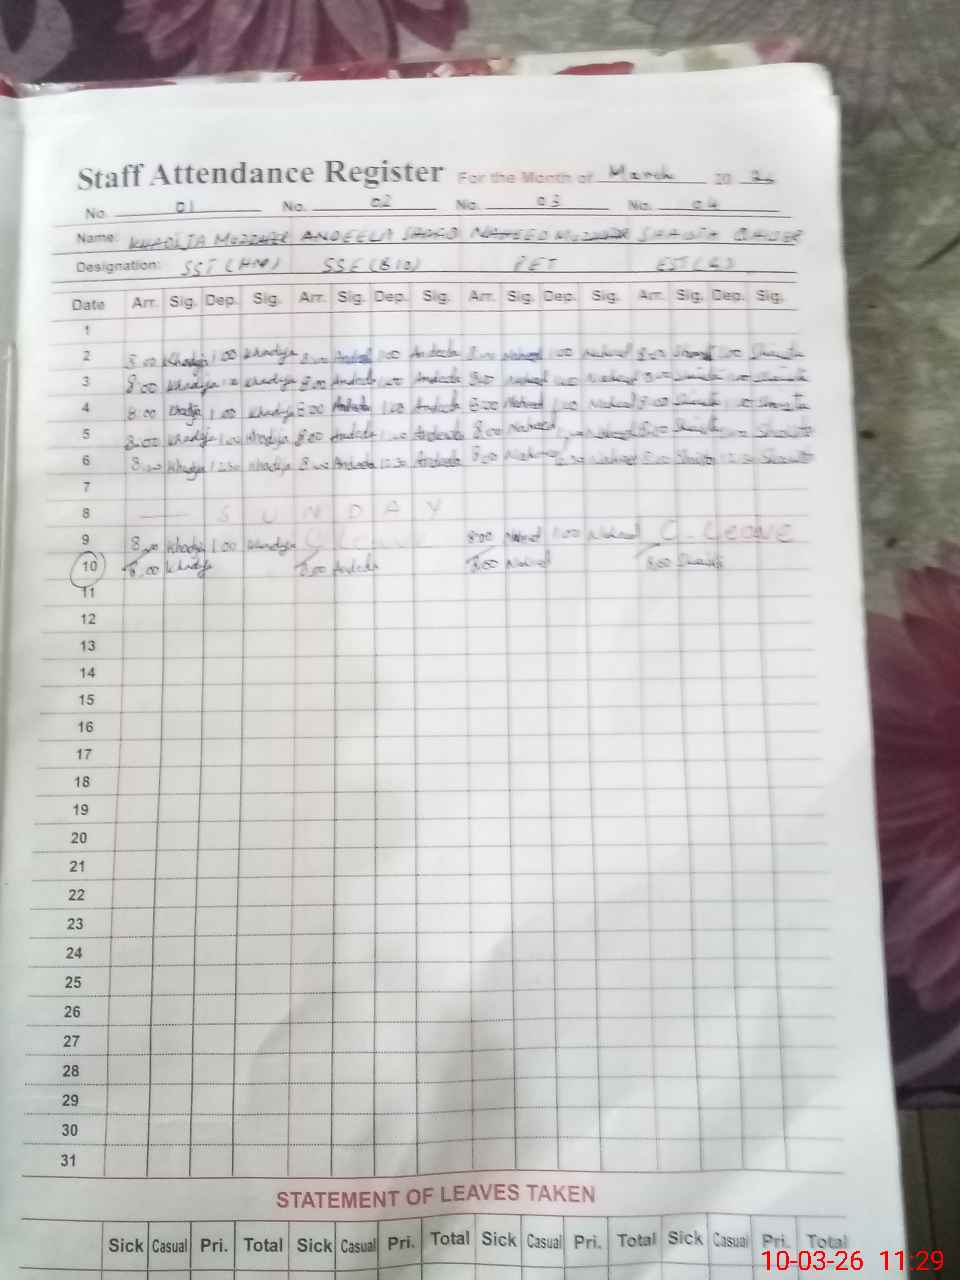 Staff Attendance Register For the Month of March 20 26
No. 01 No. 02 No. 03 No. 04
Name: KHADIJA MUZZAFER ANDEELA NAHEED SHAISTA QAISER
Designation: SST (HM) SSE (BIO) PET
Date Arr. Sig. Dep. Sig. Arr. Sig. Dep. Sig. Arr. Sig. Dep. Sig. Arr. Sig. Dep. Sig.
1
2 8:00 Khadija 1:00 Khadija 8:00 Andeela 1:00 Andeela 8:00 Naheed 1:00 Naheed 8:00 Shaista 1:00 Shaista
3 8:00 Khadija Khadija 8:00 Andeela 1:00 Andeela 8:00 Naheed 1:00 Naheed 8:00 Shaista 1:00 Shaista
4 8:00 Khadija 1:00 Khadija 8:00 Andeela 1:00 Andeela 8:00 Naheed 1:00 Naheed 8:00 Shaista 1:00 Shaista
5 8:00 Khadija 1:00 Khadija 8:00 Andeela 1:00 Andeela 8:00 Naheed Naheed 8:00 Shaista Shaista
6 8:00 Khadija 12:30 Khadija 8:00 Andeela 12:30 Andeela 8:00 Naheed 12:30 Naheed 8:00 Shaista 12:30 Shaista
7
8 SUNDAY
9 8:00 Khadija 1:00 Khadija C. Leave 8:00 Naheed 1:00 Naheed C. Leave
10 8:00 Khadija 8:00 Andeela 8:00 Naheed 8:00 Shaista
11
12
13
14
15
16
17
18
19
20
21
22
23
24
25
26
27
28
29
30
31
STATEMENT OF LEAVES TAKEN
Sick Casual Pri. Total Sick Casual Pri. Total Sick Casual Pri. Total Sick Casual Pri. Total
10-03-26 11:29